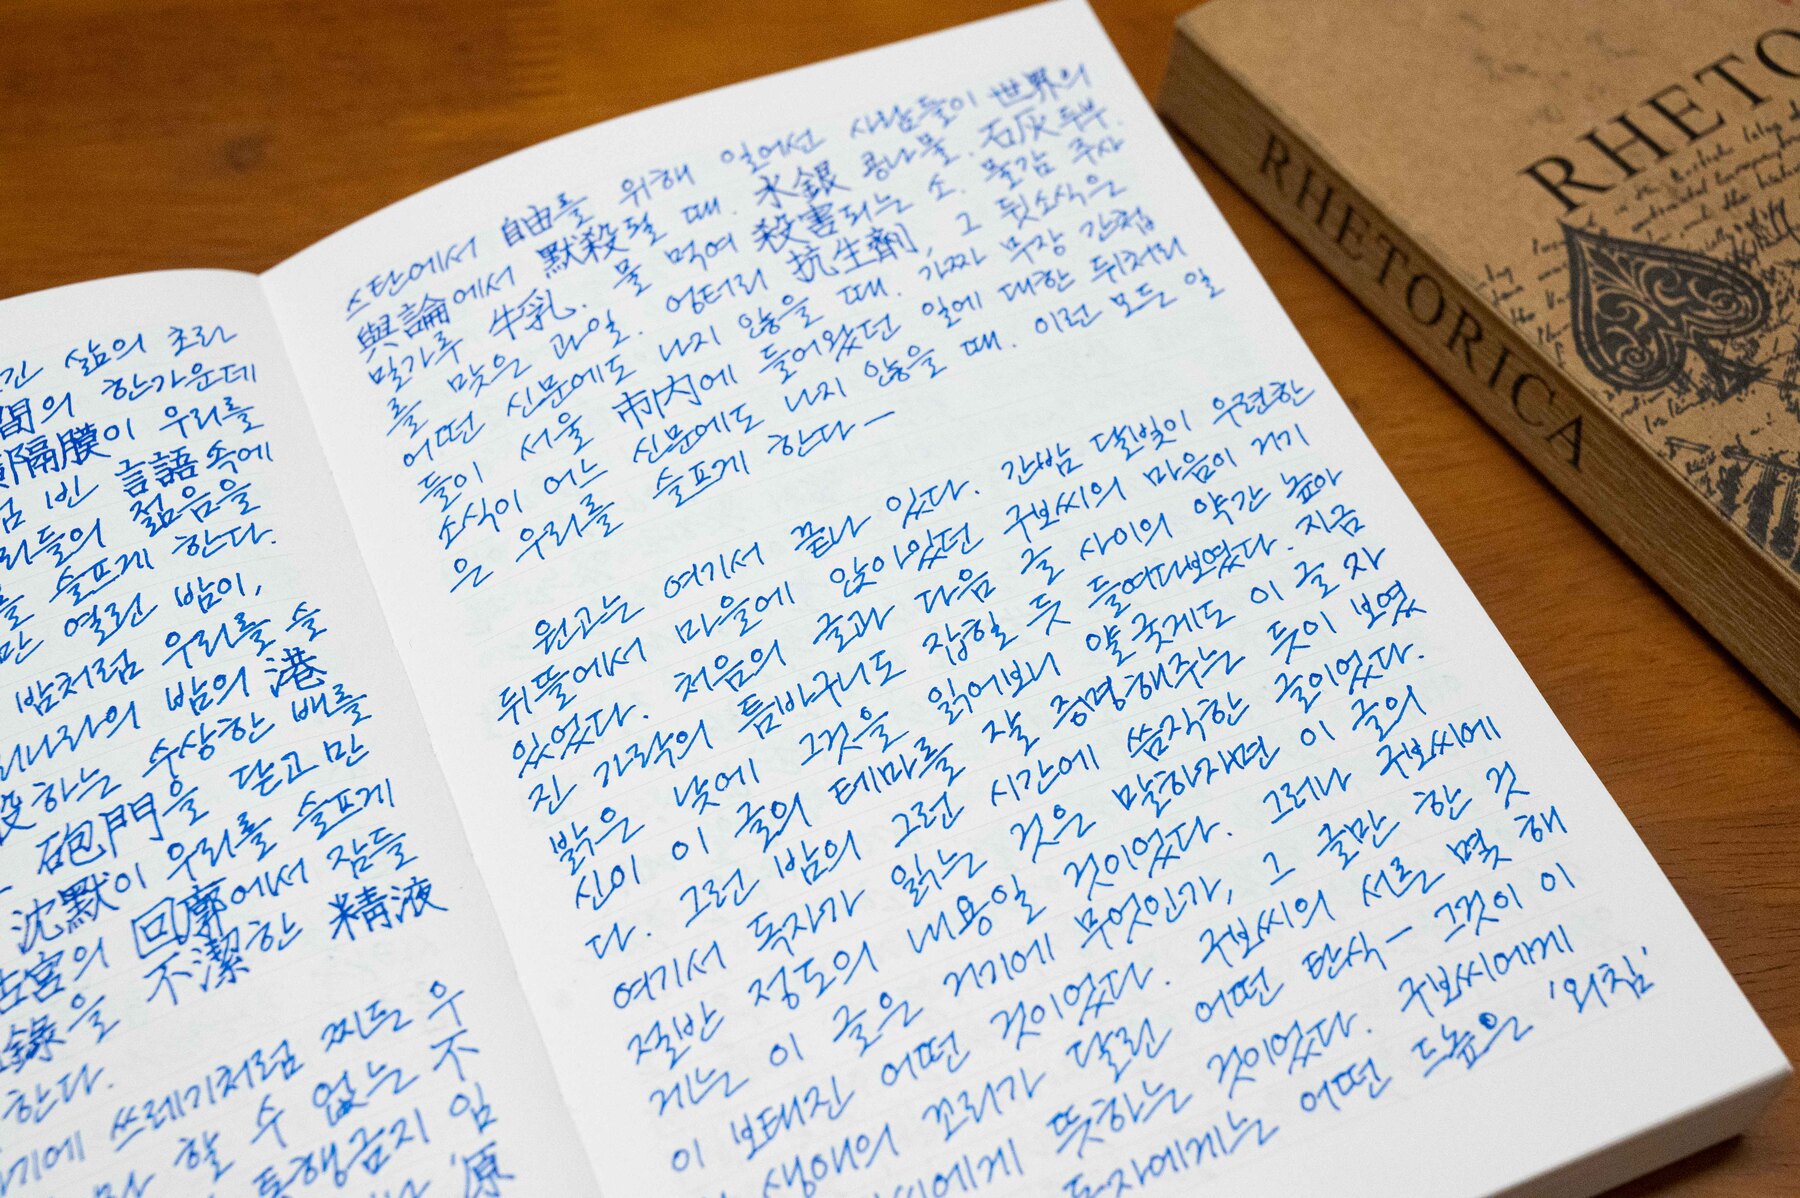 긴 삶의 초린
間의 한가운데
隔膜이 우리를
빈 言語 속에
리들의 젊음을
를 슬프게 한다.
만 열린 밤이,
밤처럼 우리를 슬
리나라의 밤의 港
하는 수상한 배를
砲門을 닫고 만
沈默이 우리를 슬프게
宮의 回廓에서 잠들
錄을 不潔한 精液
한다.
기에 쓰레기처럼 찌든 우
할 수 없는 不
통행금지 임
原
스탄에서 自由를 위해 일어선 사람들이 世界의
與論에서 默殺될 때. 水銀 콩나물. 石灰 두부.
밀가루 牛乳. 물 먹여 殺害되는 소. 물감 주사
를 맞은 과일. 엉터리 抗生劑, 그 뒷소식은
어떤 신문에도 나지 않을 때. 가짜 무장 간첩
들이 서울 市內에 들어왔던 일에 대한 뒤처리
소식이 어느 신문에도 나지 않을 때. 이런 모든 일
은 우리를 슬프게 한다—
원고는 여기서 끝나 있다. 간밤 달빛이 우련한
뒤뜰에서 마을에 앉아있던 구보씨의 마음이 거기
있었다. 처음의 글과 다음 글 사이의 약간 높아
진 가락의 틈바구니도 잡힐 듯 들여다보였다. 지금
밝은 낮에 그것을 읽어보니 얄궂게도 이 글 자
신이 이 글의 테마를 잘 증명해주는 듯이 보였
다. 그런 밤의 그런 시간에 씀직한 글이었다.
여기서 독자가 읽는 것은 말하자면 이 글의
절반 정도의 내용일 것이었다. 그러나 구보씨에
게는 이 글은 거기에 무엇인가, 그 글만 한 것
이 보태진 어떤 것이었다. 구보씨의 서른 몇 해
생애의 꼬리가 달린 어떤 탄식— 그것이 이
에게 뜻하는 것이었다. 구보씨에게
독자에게는 어떤 드높은 '외침'
RHETORICA
RHETO